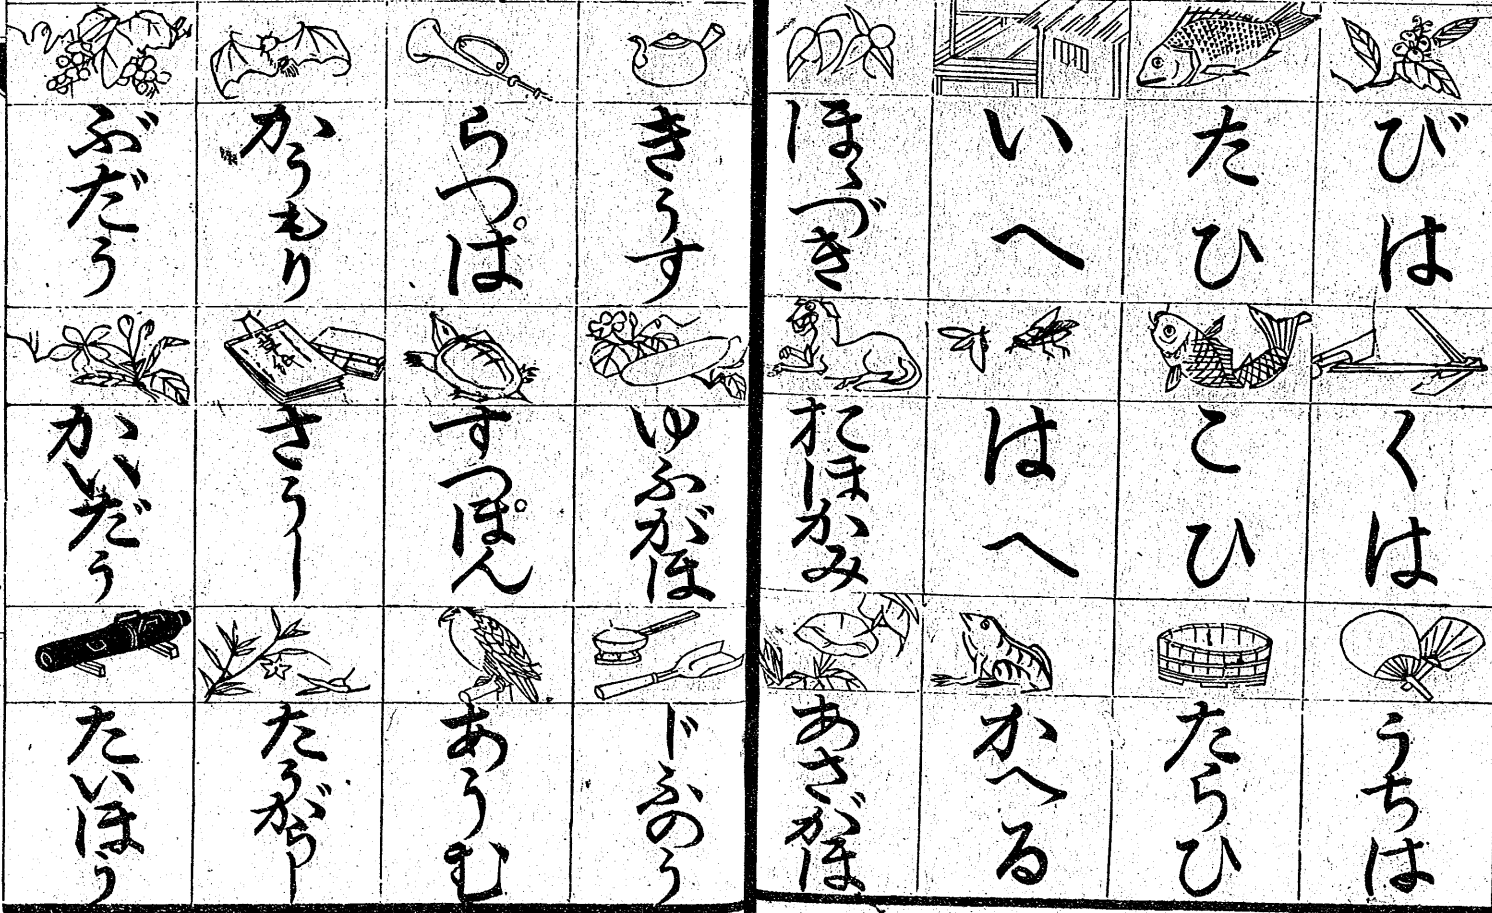 びは
くは
うちは
たひ
こひ
たらひ
いへ
はへ
かへる
ほゝづき
おほかみ
あさがほ
きうす
ゆふがほ
じふのう
らつぱ
すつぽん
あうむ
かうもり
さうし
たうがらし
ぶだう
かいだう
たいほう